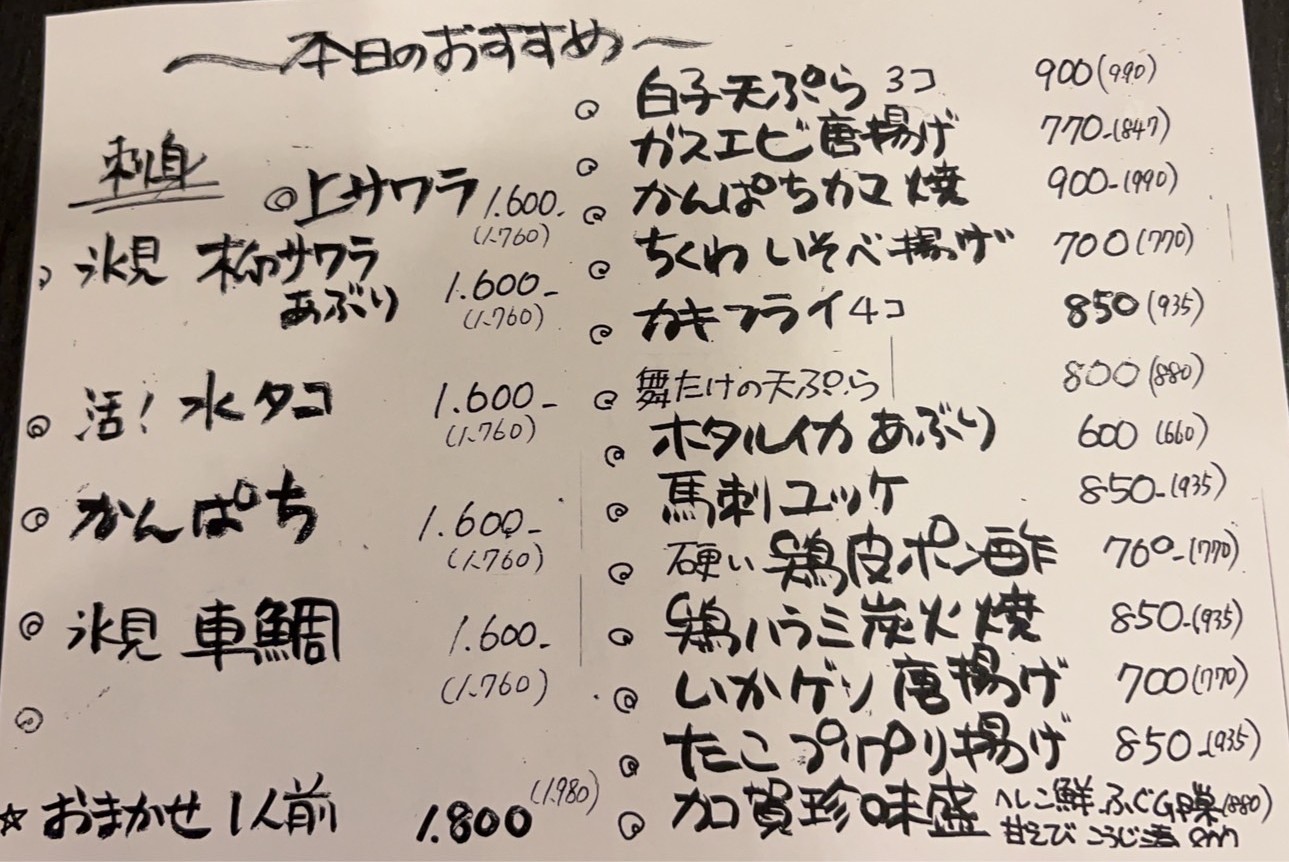 〜本日のおすすめ〜
刺身
◎上サワラ 1.600-
(1.760)
氷見 柳サワラ
あぶり 1.600-
(1.760)
活！水タコ 1.600-
(1.760)
かんぱち 1.600-
(1.760)
氷見 車鯛 1.600-
(1.760)
☆おまかせ 1人前 1.800 (1.980)
白子天ぷら 3コ 900(990)
ガスエビ唐揚げ 770-(847)
かんぱちカマ焼 900-(990)
ちくわいそべ揚げ 700(770)
カキフライ4コ 850(935)
舞たけの天ぷら 800(880)
ホタルイカあぶり 600(660)
馬刺ユッケ 850-(935)
硬い鶏皮ポン酢 760-(770)
鶏ハラミ炭火焼 850-(935)
いかゲソ唐揚げ 700(770)
たこプリプリ揚げ 850-(935)
加賀珍味盛 (880)
甘えび こうじ漬